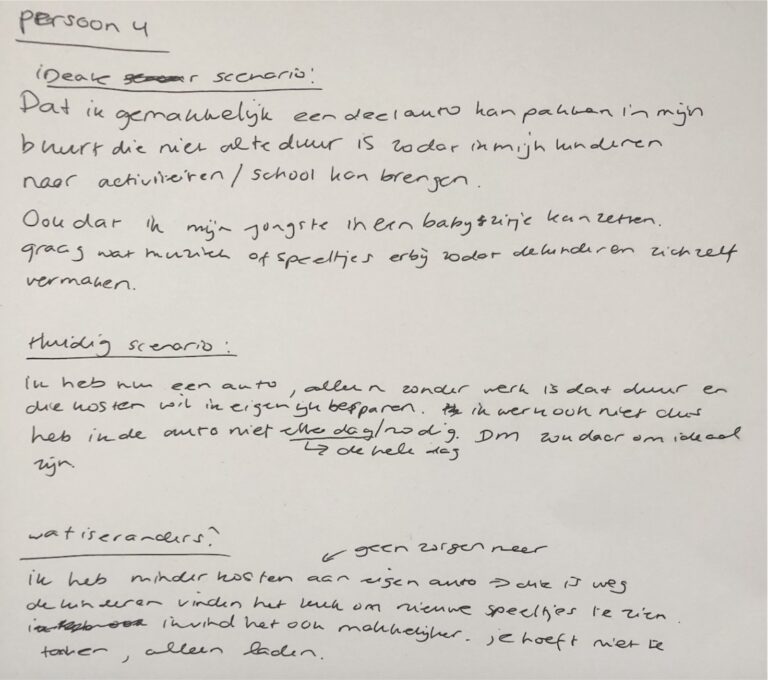 Persoon 4
ideale scenario:
Dat ik gemakkelijk een deelauto kan pakken in mijn
buurt die niet al te duur is zodat ik mijn kinderen
naar activiteiten / school kan brengen.
Ook dat ik mijn jongste in een babyzitje kan zetten.
graag wat muziek of speeltjes erbij zodat de kinderen zichzelf
vermaken.
Huidig scenario:
ik heb nu een auto, alleen zonder werk is dat duur en
die kosten wil ik eigenlijk besparen. ik werk ook niet dus
heb ik de auto niet elke dag / nodig. DM zou daarom ideaal
↳ de hele dag
zijn.
wat is er anders?
↙ geen zorgen meer
ik heb minder kosten aan eigen auto → die is weg
de kinderen vinden het leuk om nieuwe speeltjes te zien.
ik vind het ook makkelijker. je hoeft niet te
tanken, alleen laden.